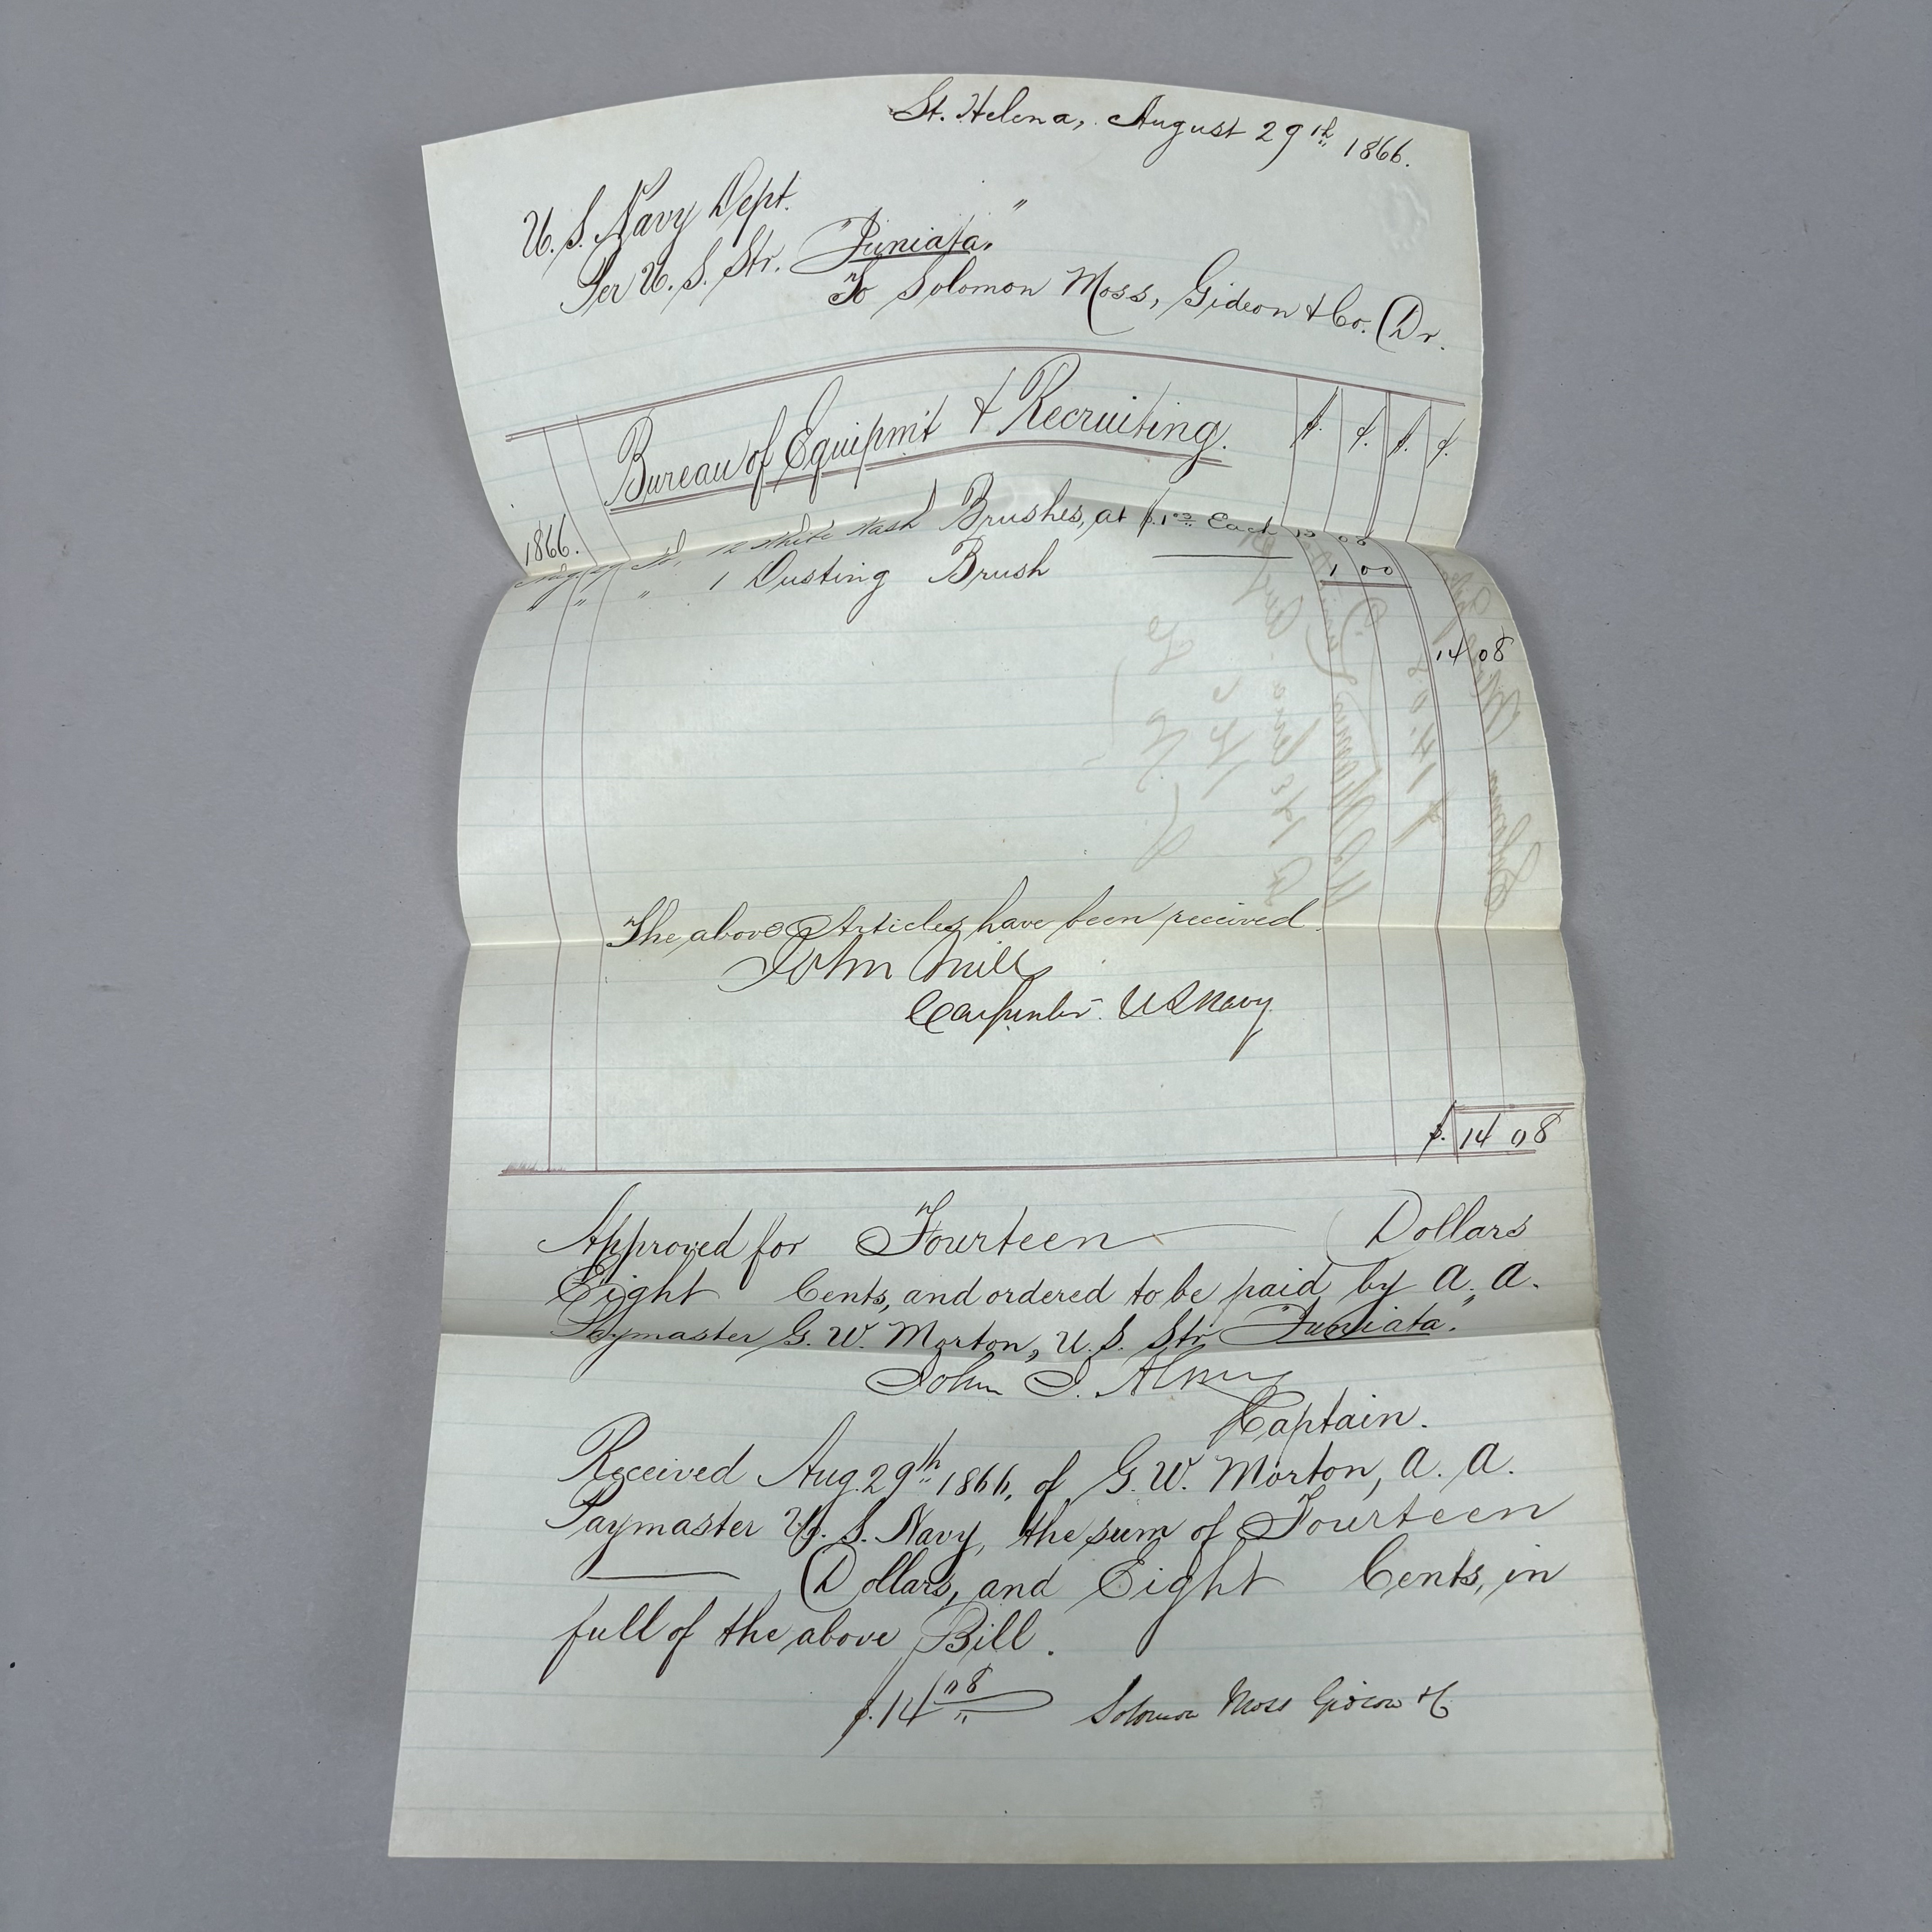 St. Helena, August 29th 1866.
U. S. Navy Dept.
Per U. S. Str. "Juniata."
To Solomon Moss, Gideon & Co. Dr.
Bureau of Equipmt & Recruiting.
$. ¢. $. ¢.
1866.
Aug 29 To, 12 White Wash Brushes, at Each 13 08
" " " 1 Dusting Brush 1 00
14 08
The above Articles have been received.
John
Carpenter U S Navy
$. 14 08
Approved for Fourteen Dollars
Eight Cents, and ordered to be paid by A. A.
Paymaster G. W. Morton, U. S. Str "Juniata."
John J. Almy
Captain.
Received Aug. 29th 1866, of G. W. Morton, A. A.
Paymaster U. S. Navy, the sum of Fourteen
Dollars, and Eight Cents, in
full of the above Bill.
$. 14 08 Solomon Moss Gideon & Co